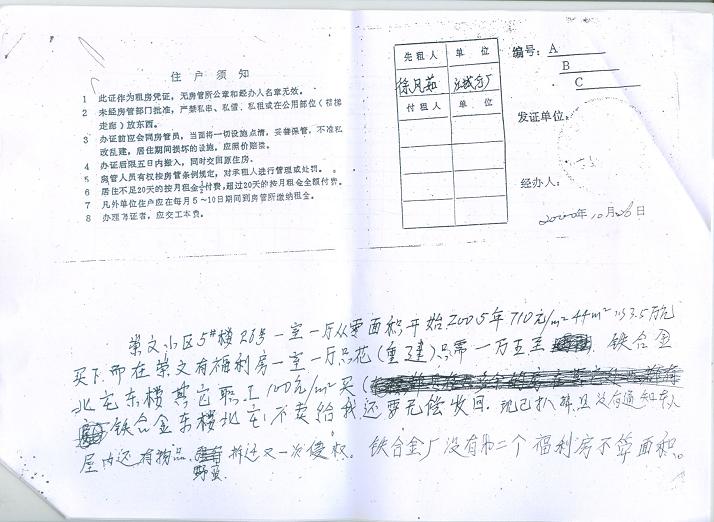 住户须知
1 此证作为租房凭证，无房管所公章和经办人名章无效。
2 未经房管部门批准，严禁私串、私借、私租或在公用部位（楼梯
走廊）放东西。
3 办证前应会同房管员，当面将一切设施点清，妥善保管，不准私
改乱建，居住期间损坏的设施，应照价赔偿。
4 办证后限五日内搬入，同时交回原住房。
5 房管人员有权按房管条例规定，对承租人进行管理或处罚。
6 居住不足20天的按月租金½付费，超过20天的按月租金全额付费。
7 凡外单位住户应在每月5～10日期间到房管所缴纳租金。
8 办理房证者，应交工本费。
先租人 单位
徐凡茹
付租人 单位
编号：A
B
C
发证单位：
经办人：
2000年10月26日
崇文小区5#楼26号一室一厅从零面积开始2005年710元/m² 44m²为3.5万元
买下而在崇文有福利房一室一厅只花（重建）只需一万五 铁合金
北宅东楼其它职工100元/m²买（
铁合金东楼北宅不卖给我还要无偿收回。现已扒 且没有通知本人
屋内还有物品。野蛮拆迁又一次侵权。铁合金厂没有和二个福利房不算面积。